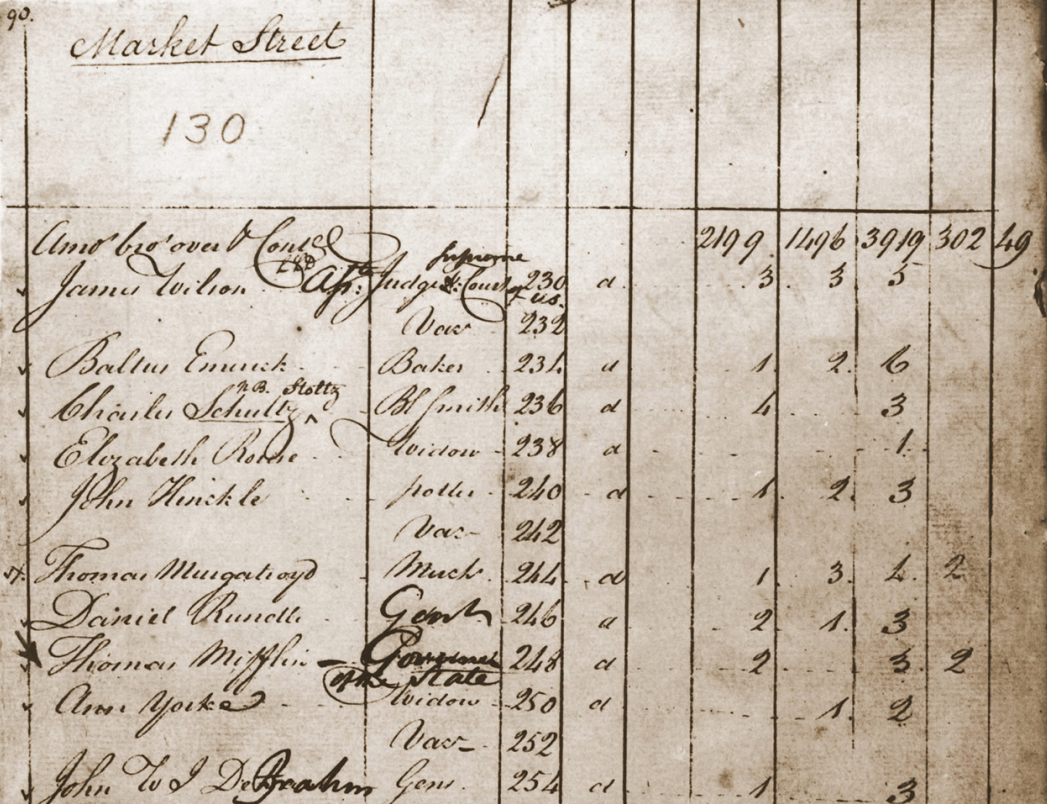 90.
Market Street
130
Amo.t bro.t over 2199 1496 3919 302 49
James Wilson Ass.te Judge Supreme Court of US. 230 d 3 3 5
Vac 232
Baltus Emrick Baker 234 d 1 2 6
Charles Schultz N.B. Stoltz Bl Smith 236 d 4 3
Elizabeth Widow 238 d 1
John Hinckle potter 240 d 1 2 3
Vac 242
Thomas Murgatroyd Merch 244 d 1 3 2 2
Daniel Rundle Gent 246 d 2 1 3
Thomas Mifflin Governor of the State 248 d 2 3 2
Ann Yorke Widow 250 d 1 2
Vac 252
John W I De Brahm Gent 254 d 1 3